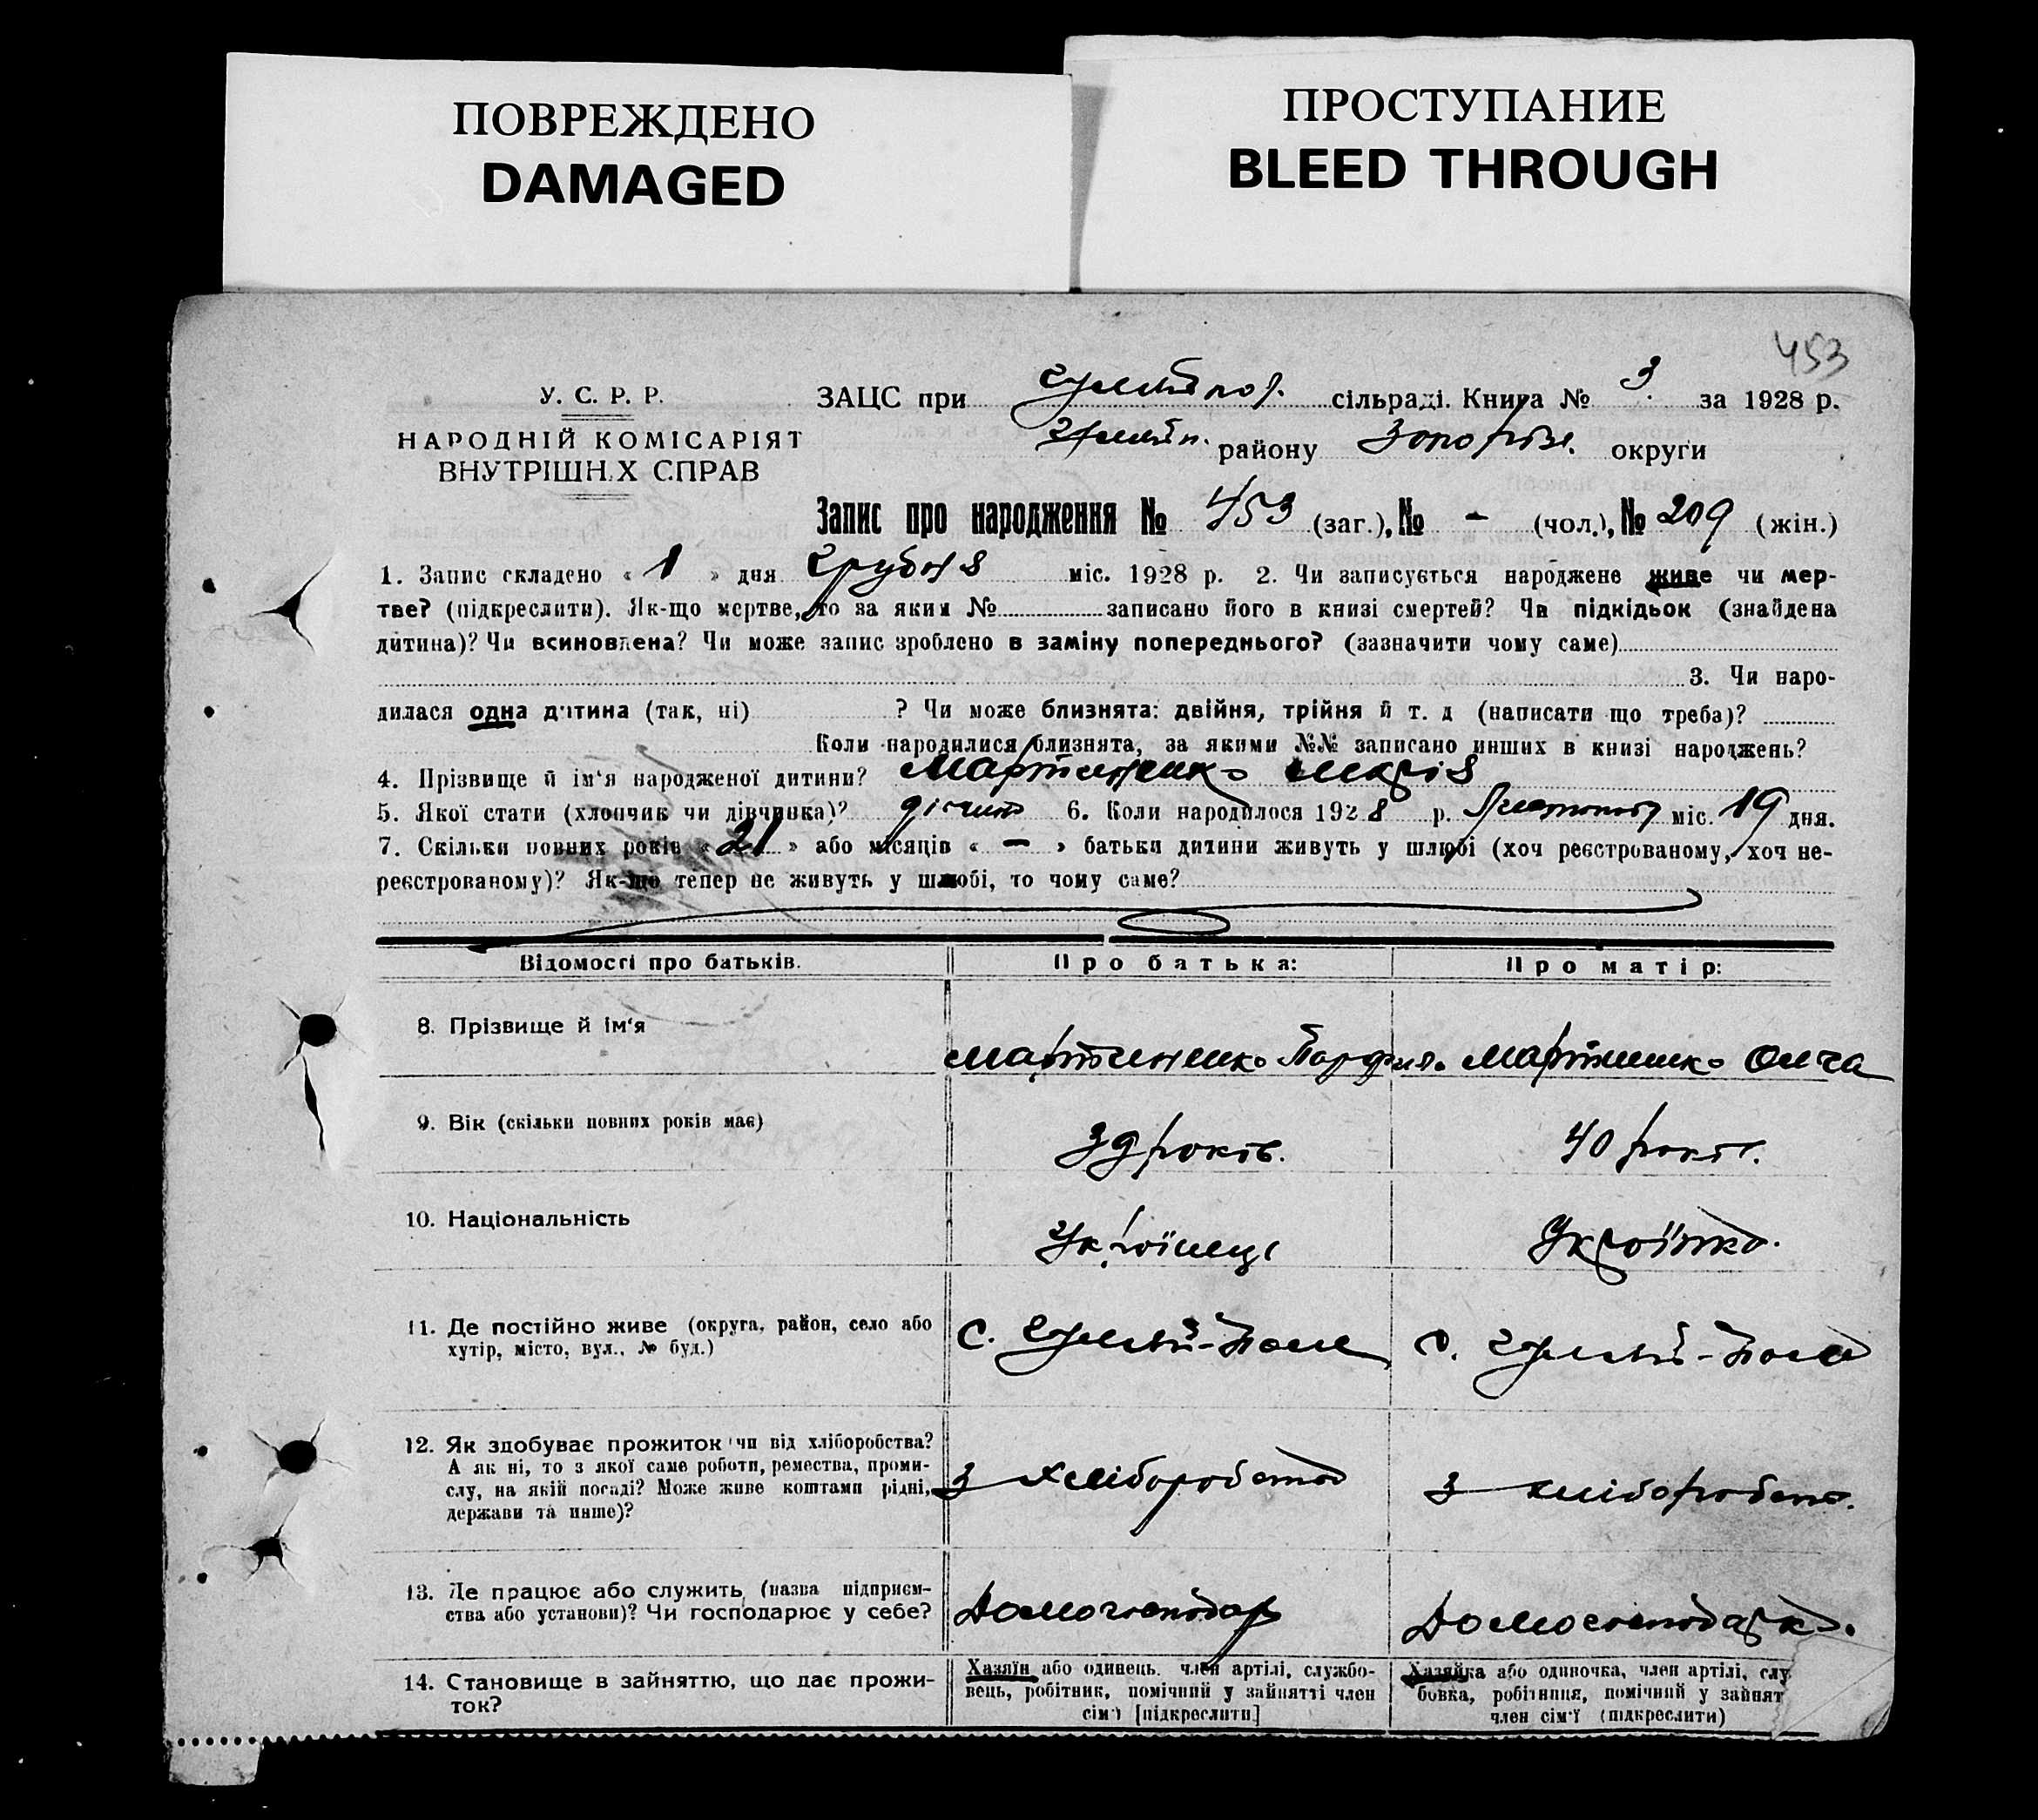 ПОВРЕЖДЕНО
DAMAGED
ПРОСТУПАНИЕ
BLEED THROUGH
453
У. С. Р. Р.
НАРОДНІЙ КОМІСАРІЯТ
ВНУТРІШН.Х СПРАВ
ЗАЦС при сільраді. Книга № 3 за 1928 р.
району округи
Запис про народження № 453 (заг.), № - (чол.), № 209 (жін.)
1. Запис складено « 1 » дня Грудня міс. 1928 р. 2. Чи записується народжене живе чи мер-
тве? (підкреслити). Як-що мертве, то за яким № записано його в книзі смертей? Чи підкідьок (знайдена
дитина)? Чи всиновлена? Чи може запис зроблено в заміну попереднього? (зазначити чому саме)
3. Чи наро-
дилася одна дитина (так, ні) ? Чи може близнята: двійня, трійня й т. д (написати що треба)?
Коли народилися близнята, за якими №№ записано инших в книзі народжень?
4. Прізвище й ім'я народженої дитини? Мартиненко Марія
5. Якої стати (хлопчик чи дівчинка)? 6. Коли народилося 1928 р. міс. 19 дня.
7. Скільки повних років « 21 » або місяців « - » батьки дитини живуть у шлюбі (хоч реєстрованому, хоч не-
реєстрованому)? Як-що тепер не живуть у шлюбі, то чому саме?
Відомості про батьків.
Про батька:
Про матір:
8. Прізвище й ім'я
Мартиненко
Мартиненко
9. Вік (скільки повних років має)
39 років.
40 років.
10. Національність
Українець
Українка.
11. Де постійно живе (округа, район, село або
хутір, місто, вул., № буд.)
с. Гуляй-Поле
с. Гуляй-Поле
12. Як здобуває прожиток чи від хліборобства?
А як ні, то з якої саме роботи, ремества, проми-
слу, на якій посаді? Може живе коштами рідні,
держави та инше)?
з хліборобства
з хліборобств.
13. Де працює або служить (назва підприєм-
ства або установи)? Чи господарює у себе?
Домогосподар
Домогосподарка.
14. Становище в зайняттю, що дає прожи-
ток?
Хазяїн або одинець. член артілі, службо-
вець, робітник, помічний у зайнятті член
сім'ї [підкреслити]
Хазяйка або одиночка, член артілі, слу
бовка, робітниця, помічний у зайнят
член сім'ї (підкреслити)